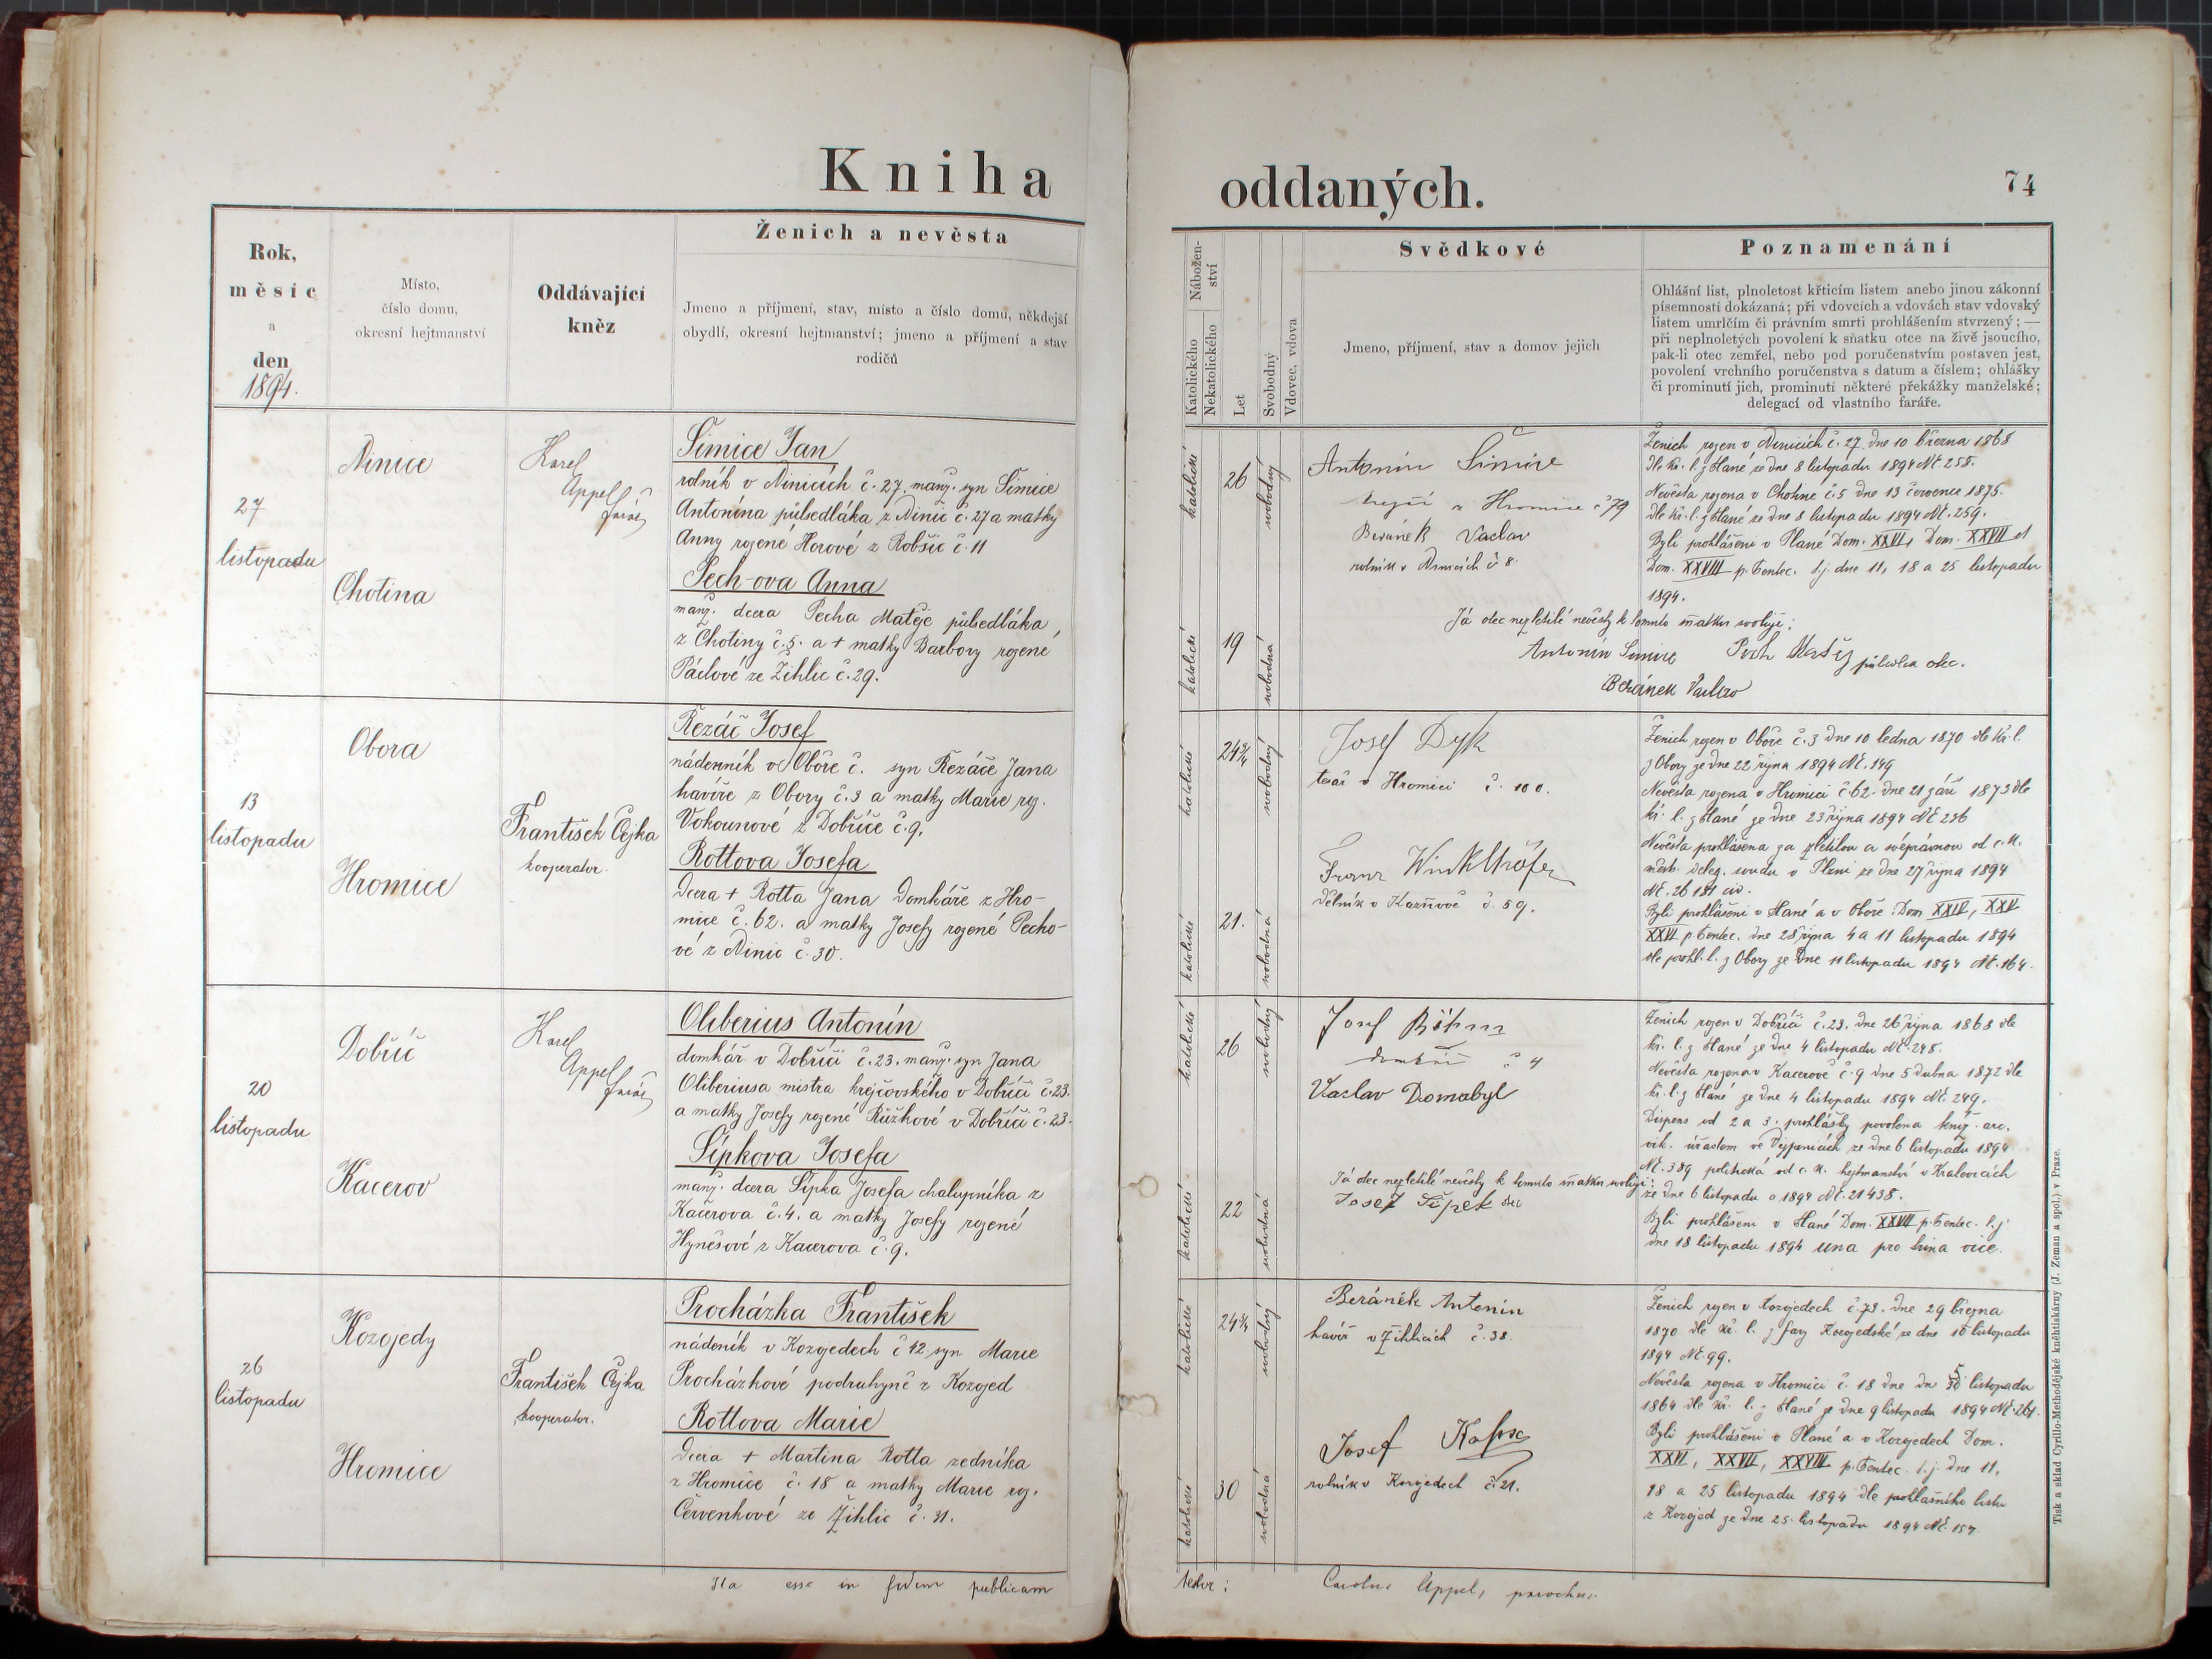 Kniha
oddaných.
74
Rok,
měsíc
a
den
1894.
Místo,
číslo domu,
okresní hejtmanství
Oddávající
kněz
Ženich a nevěsta
Jmeno a příjmení, stav, místo a číslo domu, někdejší
obydlí, okresní hejtmanství; jmeno a příjmení a stav
rodičů
Nábožen-
ství
Katolického
Nekatolického
Let
Svobodný
Vdovec, vdova
Svědkové
Jmeno, příjmení, stav a domov jejich
Poznamenání
Ohlášní list, plnoletost křticím listem anebo jinou zákonní
písemností dokázaná; při vdovcích a vdovách stav vdovský
listem umrlčím či právním smrti prohlášením stvrzený; —
při neplnoletých povolení k sňatku otce na živě jsoucího,
pak-li otec zemřel, nebo pod poručenstvím postaven jest,
povolení vrchního poručenstva s datum a číslem; ohlášky
či prominutí jich, prominutí některé překážky manželské;
delegací od vlastního faráře.
27
listopadu
Ninice
Chotina
Karel
Appel
farář
Šimice Jan
rolník v Ninicích č. 27. manž. syn Šimice
Antonína půlsedláka z Ninic č. 27 a matky
Anny rozené Horové z Robšic č. 11
Pech-ova Anna
manž. dcera Pecha Matěje půlsedláka
z Chotiny č. 5. a + matky Barbory rozené
Páclové ze Žihlic č. 29.
katolické
26
svobodný
katolické
19
svobodná
Antonín Šimice
krejčí z Hromice č 79
Beránek Vaclav
rolník v Ninicích č 8.
Ženich rozen v Ninicích č. 27. dne 10 března 1868
dle kř. l. z Plané ze dne 8 listopadu 1894 Nč 258.
Nevěsta rozena v Chotine č. 5 dne 13 července 1875.
dle kř. l. z Plané ze dne 8 listopadu 1894 Nč. 259.
Byli prohlášeni v Plané Dom. XXVI, Dom. XXVII et
Dom. XXVIII p. Pentec. t. j. dne 11, 18 a 25 listopadu
1894.
Já otec nezletilé nevěsty k tomuto sňatku svoluji:
Antonín Šimice Pech Matěj půlsedlák otec.
Beránek Václav
13
listopadu
Obora
Hromice
František Čejka
kooperator.
Řezáč Josef
nádenník v Obôře č. syn Řezáče Jana
havíře z Obory č. 3 a matky Marie roz.
Vokounové z Dobříče č. 9.
Rottova Josefa
dcera + Rotta Jana domkáře z Hro-
mice č. 62. a matky Josefy rozené Pecho-
vé z Ninic č. 30.
katolické
24 3/4
svobodný
katolické
21.
svobodná
Josef Dyk
tesař v Hromici č. 100.
Franz Winklhöfer
dělník v Kazňově č. 59.
Ženich rozen v Oboře č. 3 dne 10 ledna 1870 dle kř. l.
z Obory ze dne 22 října 1894 Nč. 149
Nevěsta rozena v Hromici č. 62. dne 21 září 1873 dle
kř. l. z Plané ze dne 23 října 1894 Nč 236
Nevěsta prohlášena za zletilou a svéprávnou od c. k.
měst. deleg. soudu v Plzni ze dne 27 října 1894
Nč. 26 181 civ.
Byli prohlášeni v Plané a v Obôře: Dom XXIV, XXV
XXVI p. Pentec. dne 28 října 4 a 11 listopadu 1894
dle prohl. l. z Obory ze dne 11 listopadu 1894 Nč. 164.
20
listopadu
Dobříč
Kacerov
Karel
Appel
farář
Oliberius Antonín
domkář v Dobříči č. 23. manž. syn Jana
Oliberiusa mistra krejčovského v Dobříči č. 23.
a matky Josefy rozené Růžkové v Dobříči č. 23.
Šípkova Josefa
manž. dcera Šípka Josefa chalupníka z
Kačerova č. 4. a matky Josefy rozené
Hynešové z Kacerova č. 9.
katolické
26
svobodný
katolické
22
svobodná
Josef Böhm
domkář č 4
Vaclav Domabyl
Já otec nezletilé nevěsty k tomuto sňatku svoluji:
Josef Šípek otec
Ženich rozen v Dobříči č. 23. dne 26 října 1868 dle
kř. l. z Plané ze dne 4 listopadu Nč. 248.
Nevěsta rozena v Kacerově č. 9 dne 5 dubna 1872 dle
kř. l. z Plané ze dne 4 listopadu 1894 Nč. 249.
Dispens od 2 a 3. prohlášky povolena kníž. arc.
vik. úřadem ve Vejprnicích ze dne 6 listopadu 1894
Nč. 389 politická od c. k. hejtmanství v Kralovicích
ze dne 6 listopadu a 1894 Nč. 21438.
Byli prohlášeni v Plané Dom. XXVII p. Pentec. t. j.
dne 18 listopadu 1894 una pro trina vice.
26
listopadu
Kozojedy
Hromice
František Čejka
kooperator.
Procházka František
nádeník v Kozojedech č 12 syn Marie
Procházkové podruhyně z Kozojed
Rottova Marie
dcera + Martina Rotta zedníka
z Hromice č. 18 a matky Marie roz.
Červenkové ze Žihlic č. 31.
katolické
24 3/4
svobodný
katolické
30
svobodná
Beránék Antonin
havíř v Žihlicích č. 38.
Josef
rolník v Kozojedech č. 21.
Ženich rozen v Kozojedech č. 73. dne 29 března
1870 dle kř. l. z fary Kozojedské ze dne 10 listopadu
1894 Nč. 99.
Nevěsta rozena v Hromici č. 18 dne dn 5 listopadu
1864 dle kř. l. z Plané ze dne 9 listopadu 1894 Nč. 261.
Byli prohlášeni v Plané a v Kozojedech Dom.
XXVI, XXVII, XXVIII p. Pentec. t. j. dne 11,
18 a 25 listopadu 1894 dle pohlašního listu
z Kozojed ze dne 25. listopadu 1894 Nč. 157
Ita esse in fidem publicam
testor: Carolus Appel, parochus.
Tisk a sklad Cyrillo-Methodějské knihtiskárny (J. Zeman a spol.) v Praze.